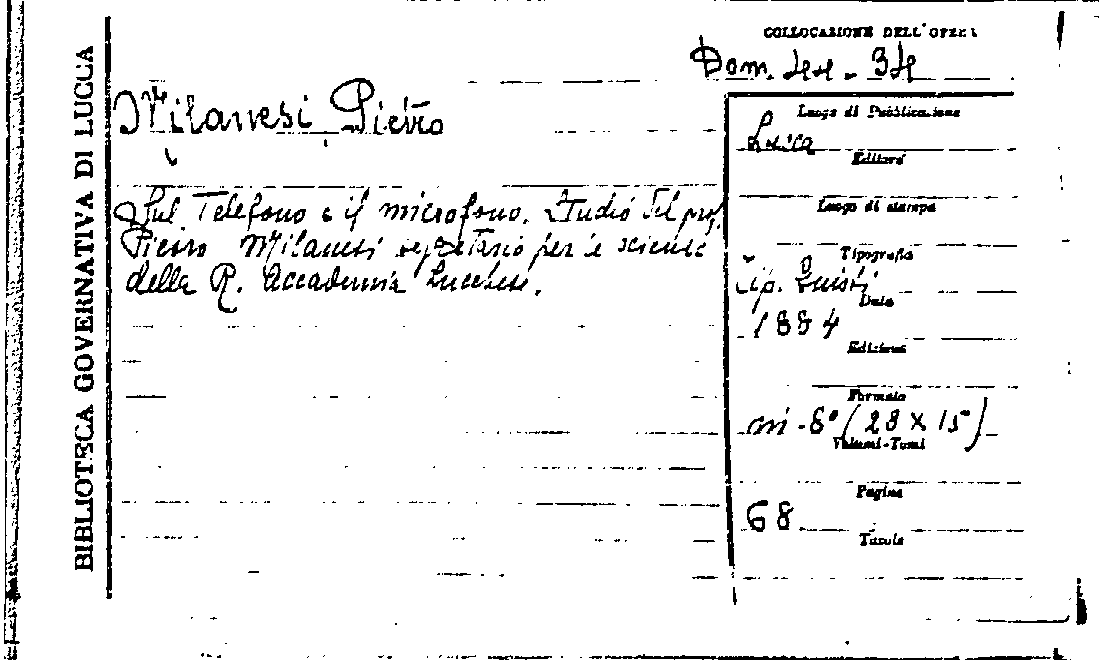 BIBLIOTECA GOVERNATIVA DI LUCCA
COLLOCAZIONE DELL'OPERA
Dom. 44 - 34
Milanesi Pietro
Sul Telefono e il microfono. Studio del prof.
Pietro Milanesi segretario per le scienze
della R. Accademia Lucchese.
Luogo di Pubblicazione
Lucca
Editore
Luogo di stampa
Tipografia
Tip. Giusti
Data
1884
Edizione
Formato
in-8° (28 X 15)
Volumi-Tomi
Pagine
68
Tavole